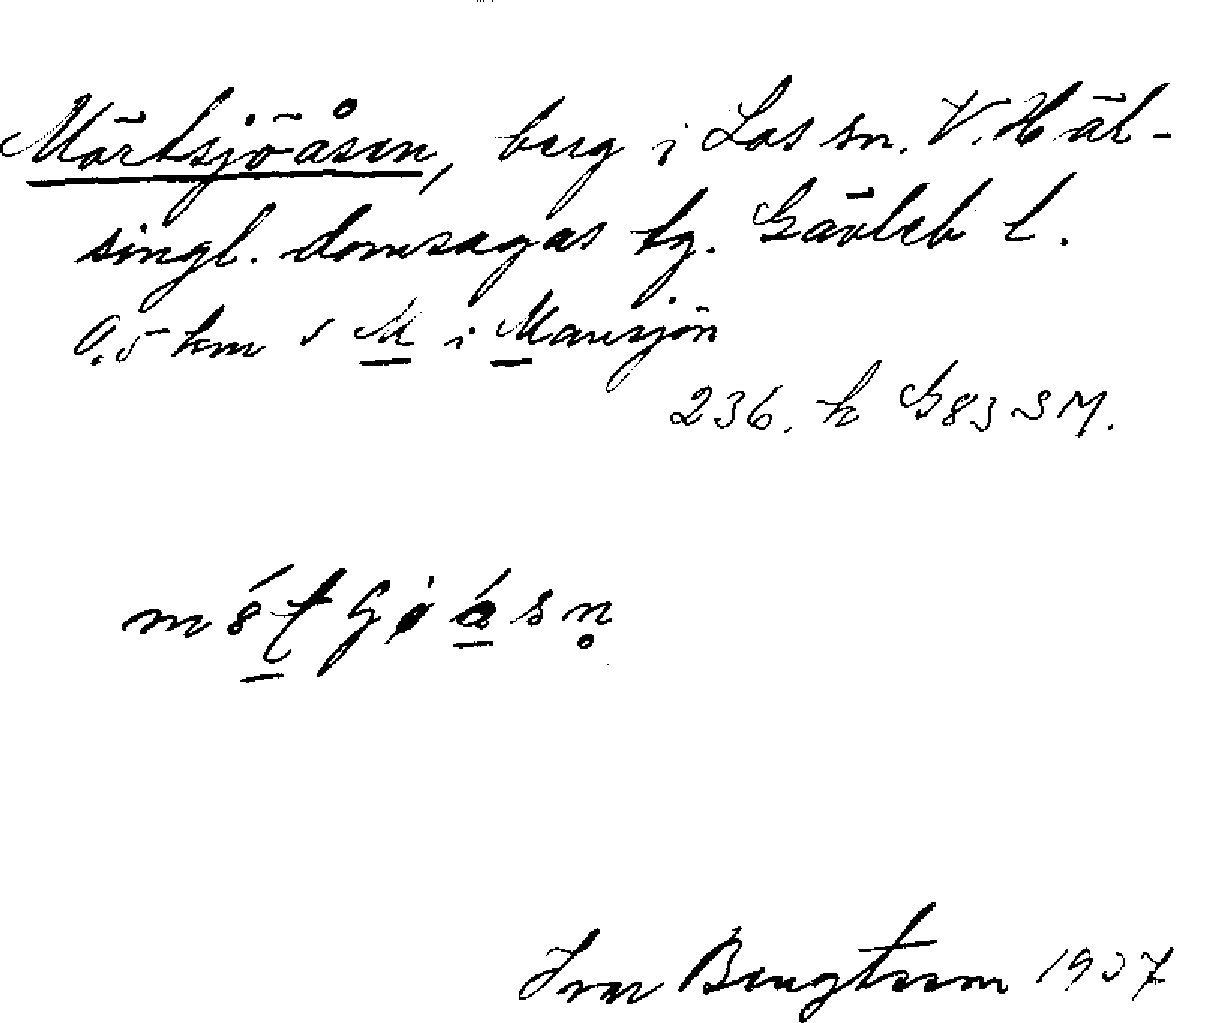 Mörtsjöåsen, berg i Los sn. V. Häl-
singl. domsagas tg. Gävleb l.
0,5 km s M i Mansjön
236. h G83 SM.
Ivar Bengtsson 1937